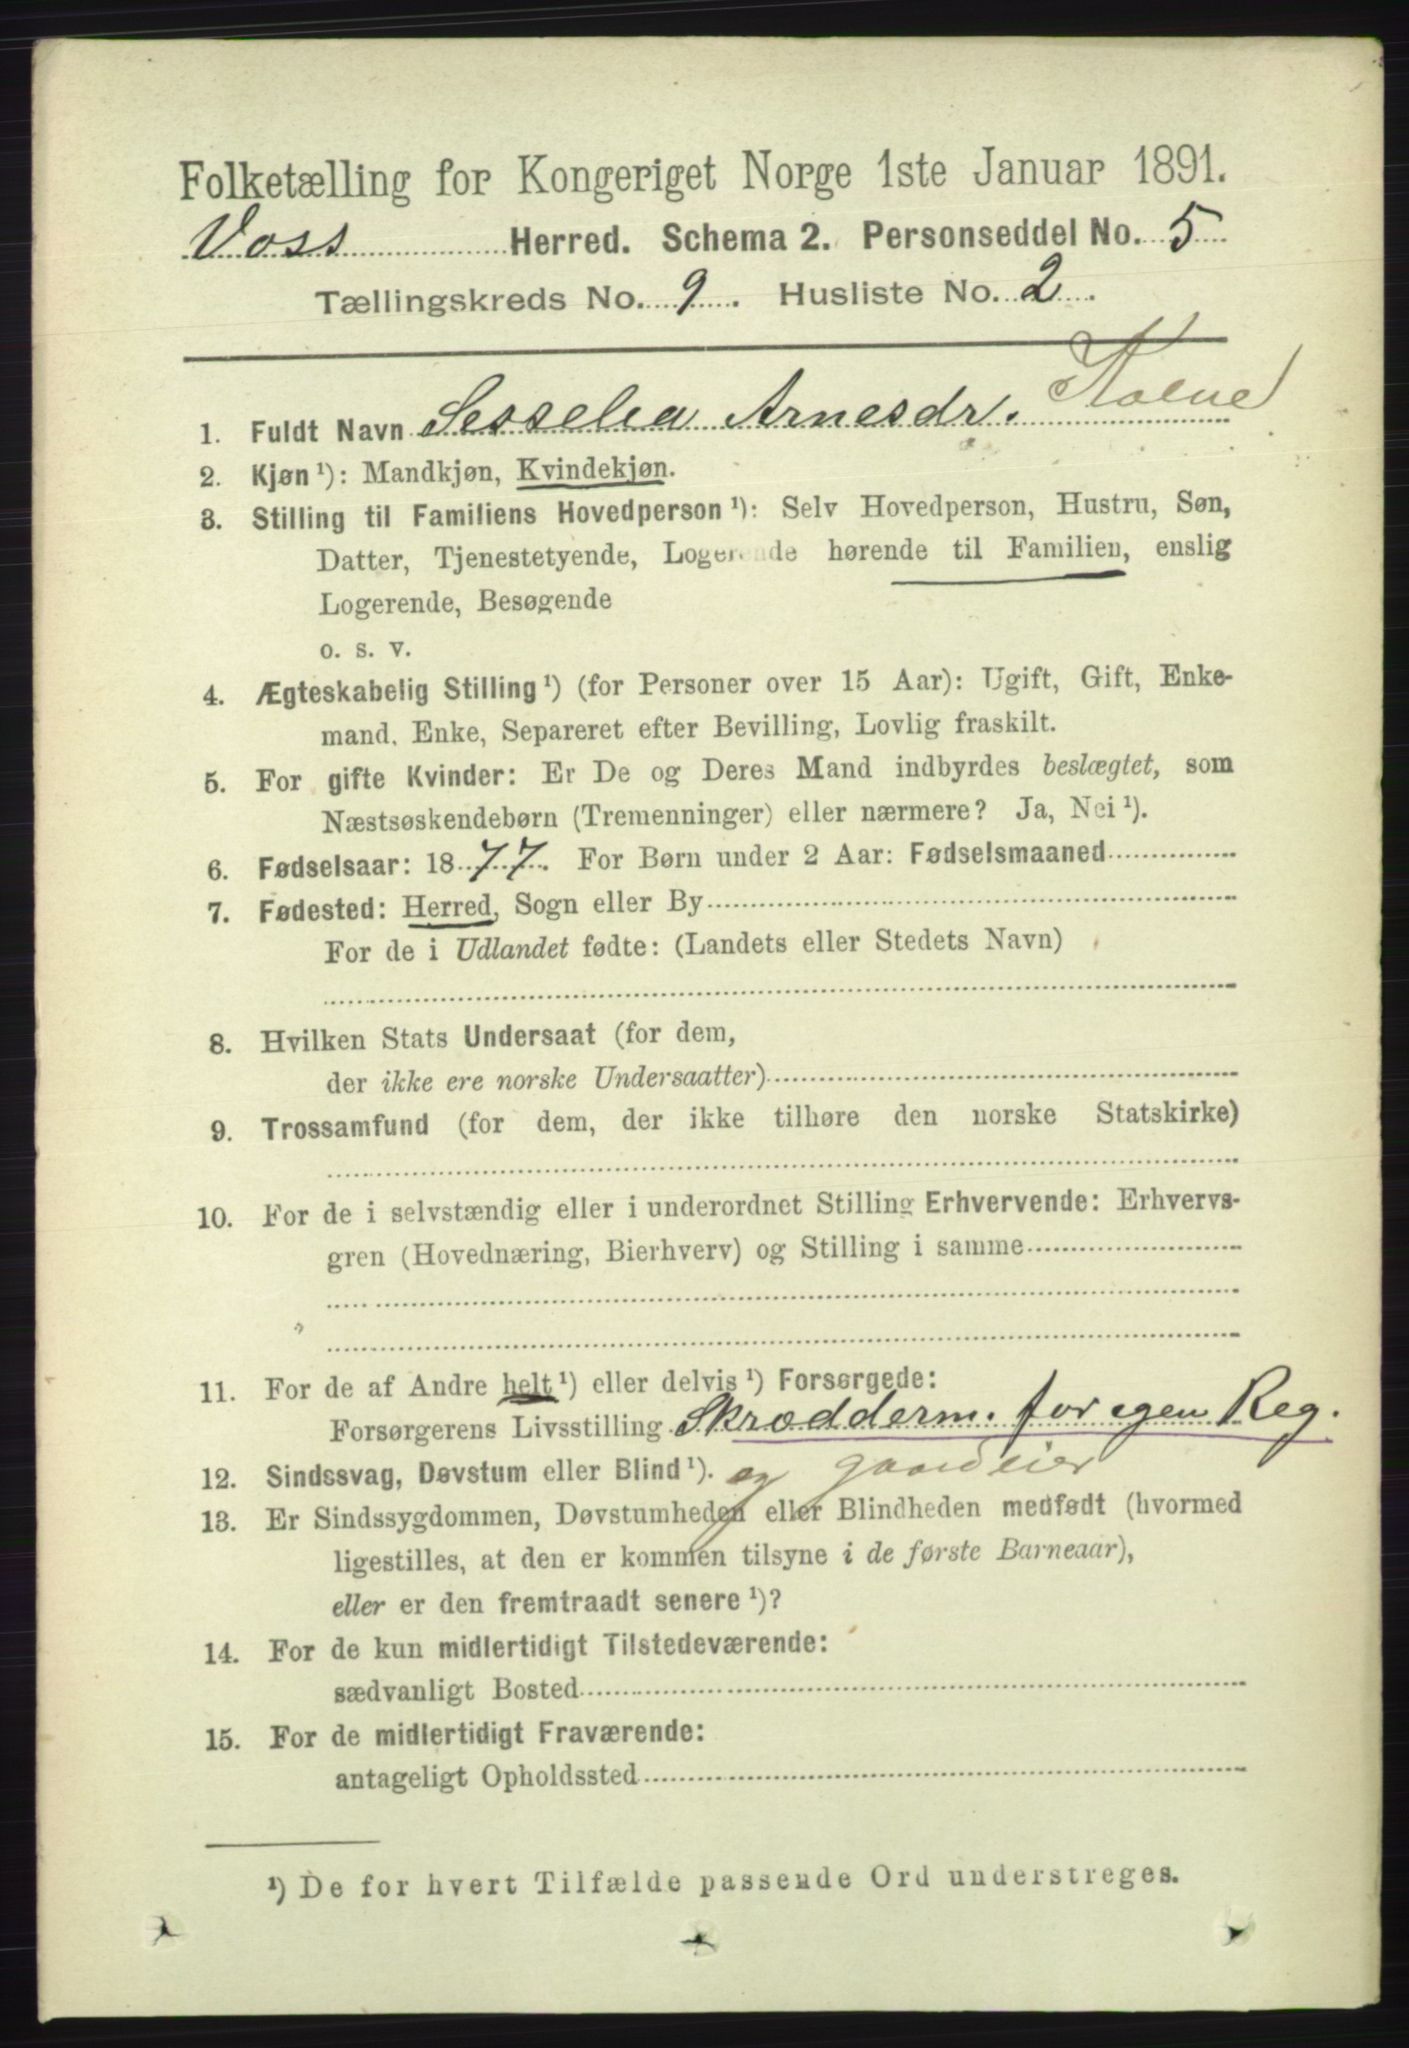 Folketælling for Kongeriget Norge 1ste Januar 1891.
Voss Herred. Schema 2. Personseddel No. 5
Tællingskreds No. 9. Husliste No. 2.
1. Fuldt Navn Sesselia Arnesdr.
2. Kjøn ¹): Mandkjøn, Kvindekjøn.
3. Stilling til Familiens Hovedperson ¹): Selv Hovedperson, Hustru, Søn,
Datter, Tjenestetyende, Logerende hørende til Familien, enslig
Logerende, Besøgende
o. s. v.
4. Ægteskabelig Stilling ¹) (for Personer over 15 Aar): Ugift, Gift, Enke-
mand. Enke, Separeret efter Bevilling, Lovlig fraskilt.
5. For gifte Kvinder: Er De og Deres Mand indbyrdes beslægtet, som
Næstsøskendebørn (Tremenninger) eller nærmere? Ja, Nei ¹).
6. Fødselsaar: 1877. For Børn under 2 Aar: Fødselsmaaned
7. Fødested: Herred, Sogn eller By
For de i Udlandet fødte: (Landets eller Stedets Navn)
8. Hvilken Stats Undersaat (for dem,
der ikke ere norske Undersaatter)
9. Trossamfund (for dem, der ikke tilhøre den norske Statskirke)
10. For de i selvstændig eller i underordnet Stilling Erhvervende: Erhvervs-
gren (Hovednæring, Bierhverv) og Stilling i samme
11. For de af Andre helt ¹) eller delvis ¹) Forsørgede:
Forsørgerens Livsstilling Skrædderm. for egen Reg.
12. Sindssvag, Døvstum eller Blind ¹). og gaardeier
13. Er Sindssygdommen, Døvstumheden eller Blindheden medfødt (hvormed
ligestilles, at den er kommen tilsyne i de første Barneaar),
eller er den fremtraadt senere ¹)?
14. For de kun midlertidigt Tilstedeværende:
sædvanligt Bosted
15. For de midlertidigt Fraværende:
antageligt Opholdssted
¹) De for hvert Tilfælde passende Ord understreges.